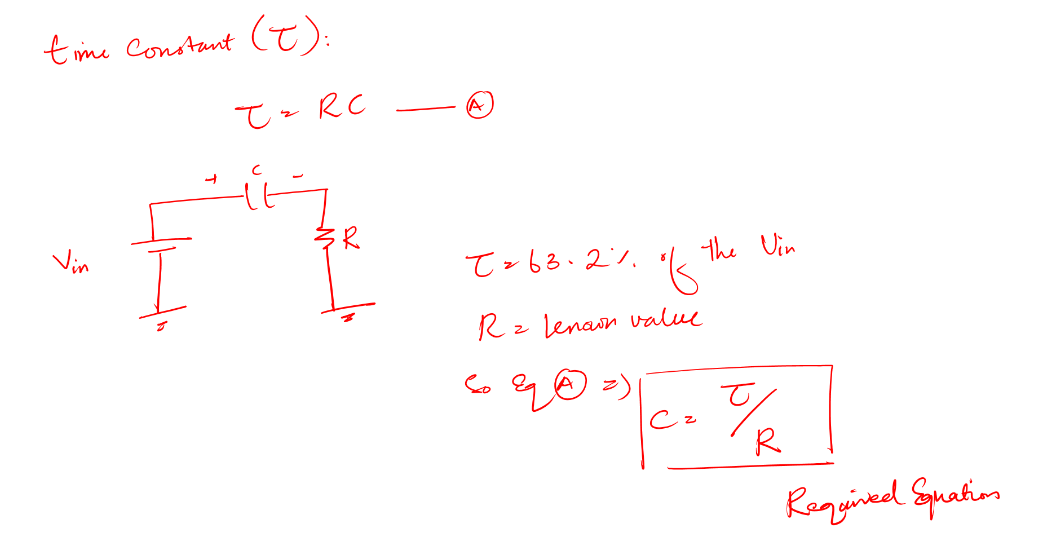 time Constant (τ):
τ = RC — Ⓐ
+ C -
Vin
R
τ = 63.2% of the Vin
R = known value
So Eq Ⓐ =>
C = τ/R
Required Equation